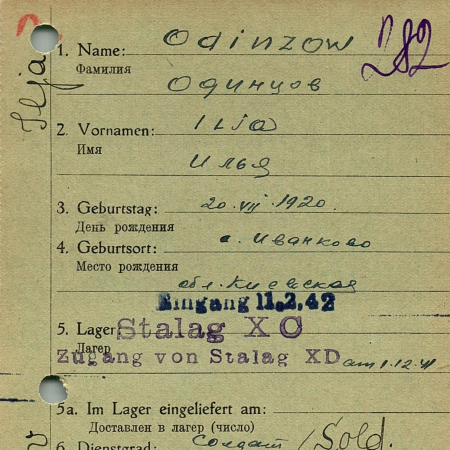 Ilja
282
1. Name: Odinzow
Фамилия
Одинцов
2. Vornamen: Ilia
Имя
Илья
3. Geburtstag: 20.VII.1920.
День рождения
4. Geburtsort: с. Иванково
Место рождения
обл. Киевская
Eingang 11.2.42
5. Lager: Stalag X C
Лагерь
Zugang von Stalag XD am 1.12.41
5a. Im Lager eingeliefert am:
Доставлен в лагерь (число)
6. Dienstgrad: солдат / Sold.